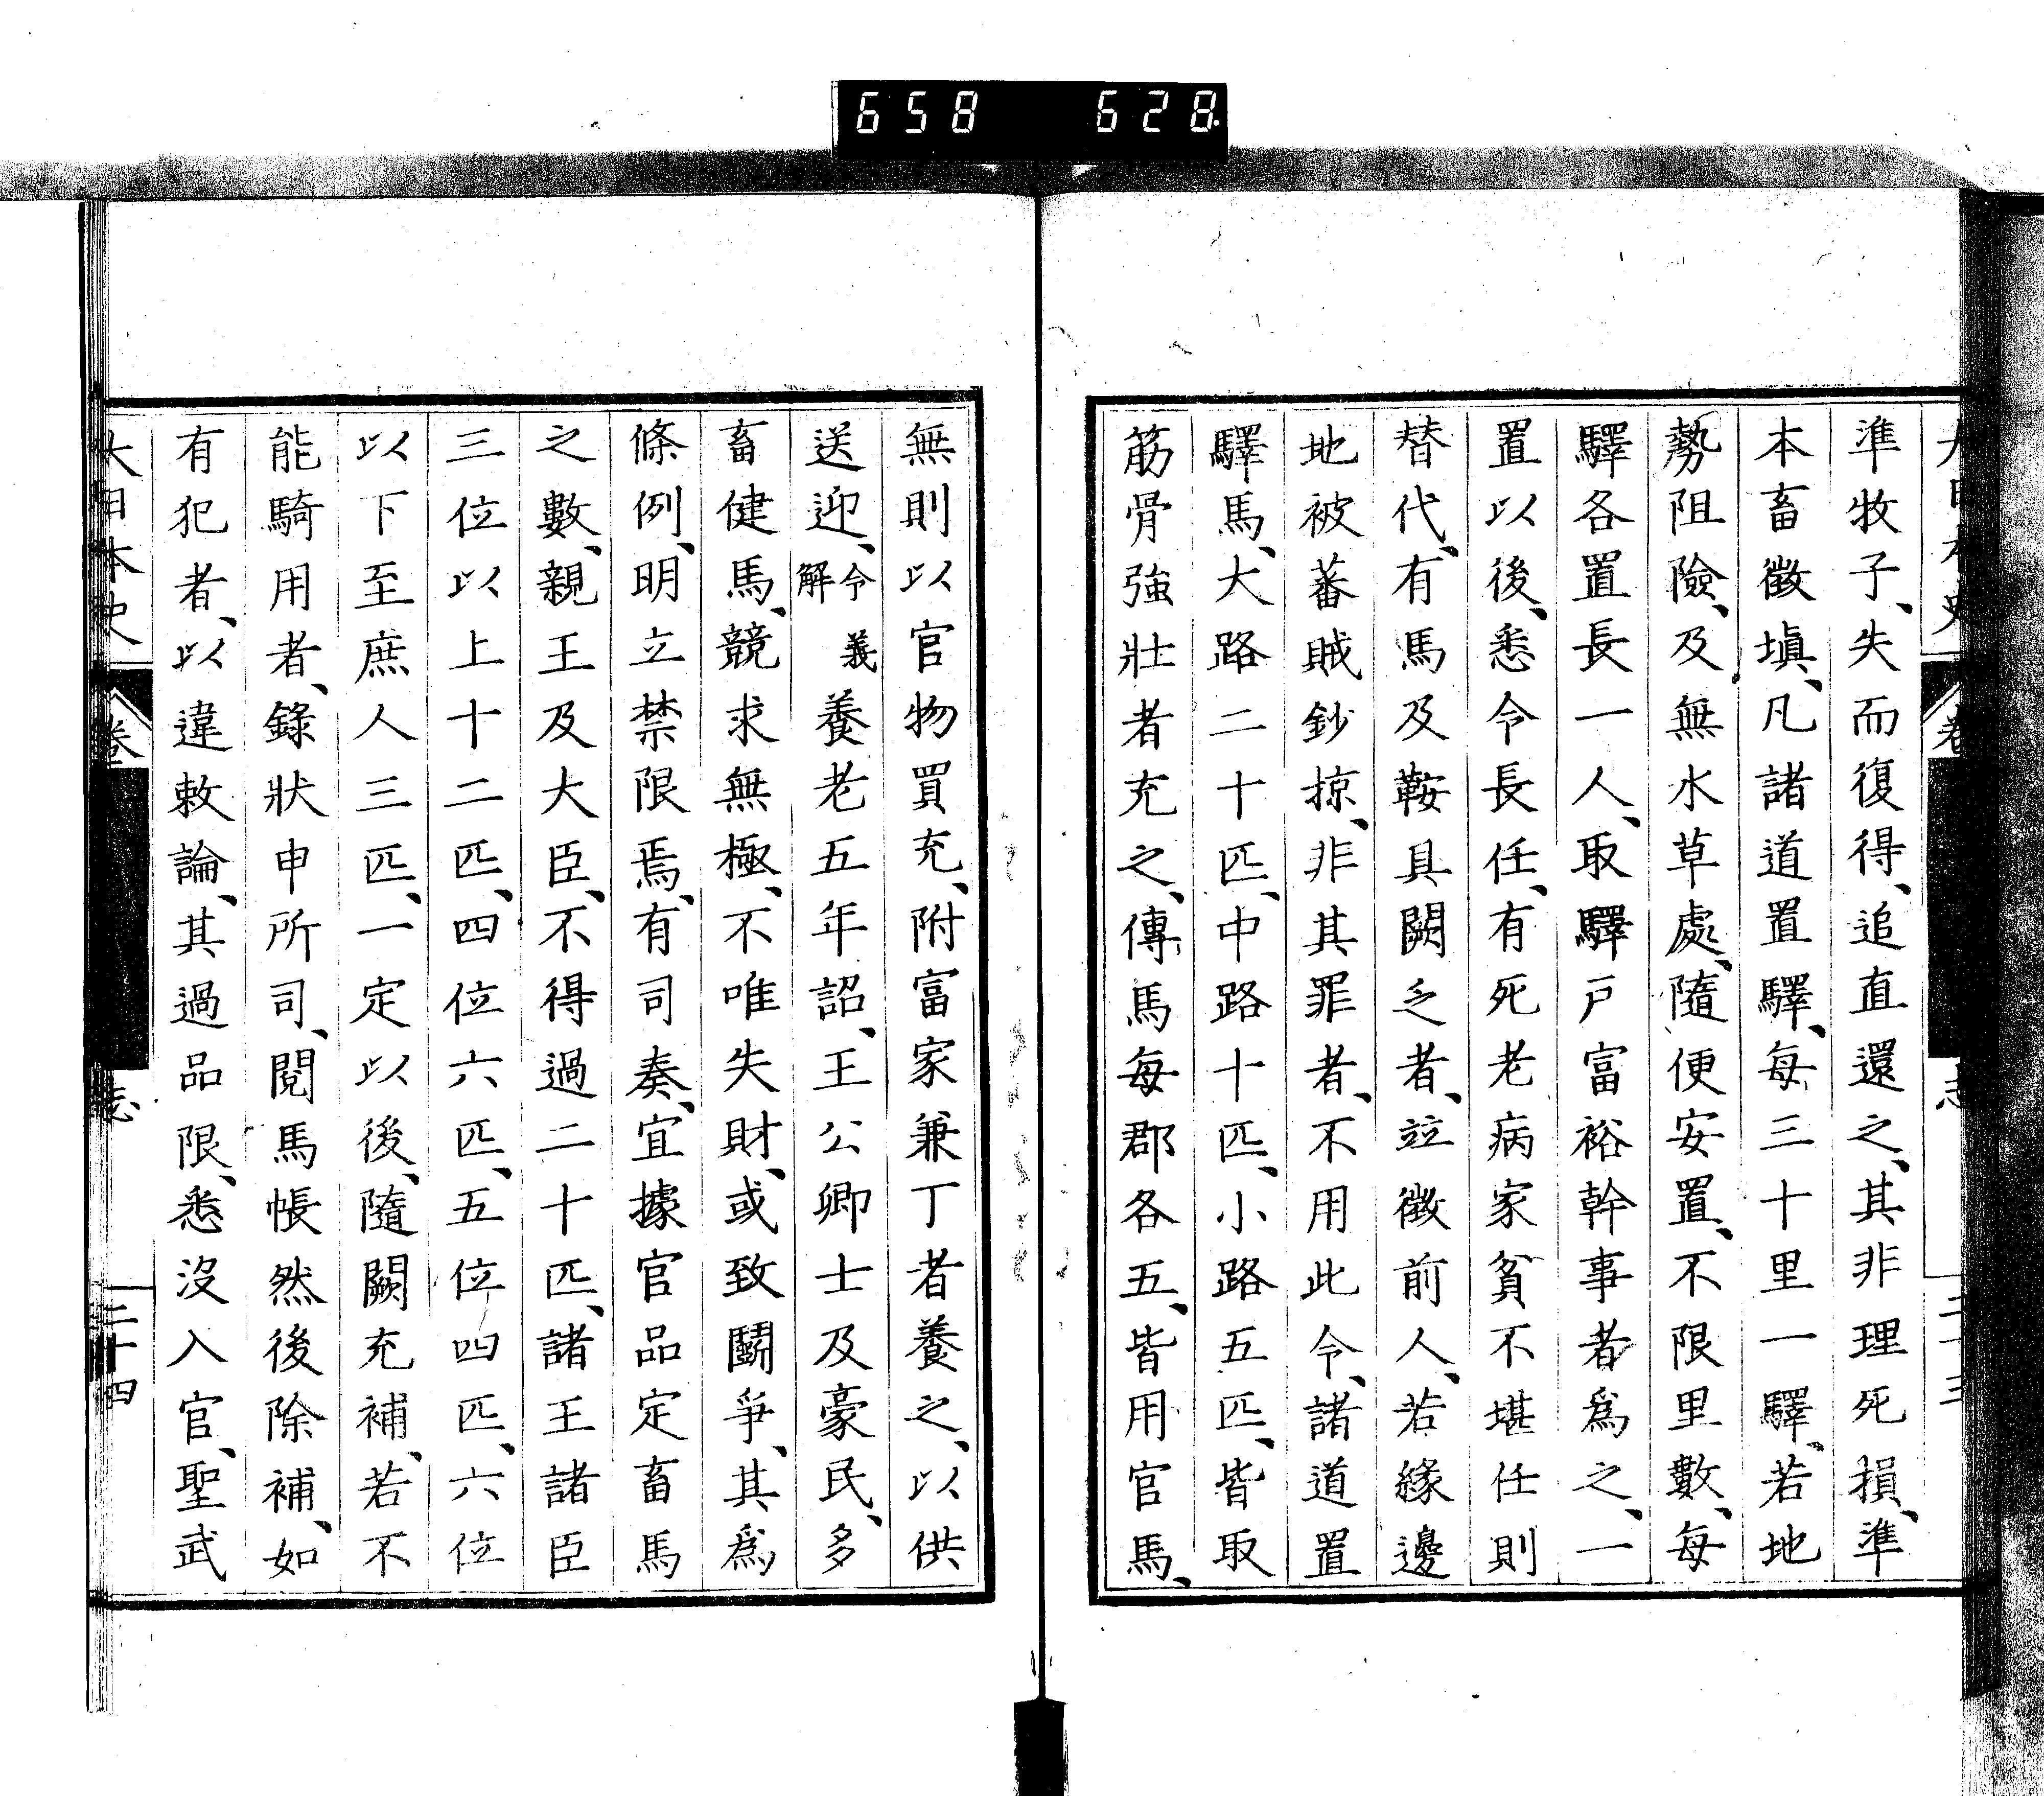 658 628
準牧子、失而復得、追直還之、其非理死損、準
本畜徵塡、凡諸道置驛、每三十里一驛、若地
勢阻險、及無水草處、隨便安置、不限里數、每
驛各置長一人、取驛戸富裕幹事者爲之、一
置以後、悉令長任、有死老病家貧不堪任則
替代、有馬及鞍具闕乏者、竝徵前人、若緣邊
地被蕃賊鈔掠、非其罪者、不用此令、諸道置
驛馬、大路二十匹、中路十匹、小路五匹、皆取
筋骨強壯者充之、傳馬每郡各五、皆用官馬、
無則以官物買充、附富家兼丁者養之、以供
送迎、令義解養老五年詔、王公卿士及豪民、多
畜健馬、競求無極、不唯失財、或致鬪爭、其爲
條例、明立禁限焉、有司奏、宜據官品定畜馬
之數、親王及大臣、不得過二十匹、諸王諸臣
三位以上十二匹、四位六匹、五位四匹、六位
以下至庶人三匹、一定以後、隨闕充補、若不
能騎用者、錄狀申所司、閱馬帳然後除補、如
有犯者、以違敕論、其過品限、悉沒入官、聖武
大日本史 卷 志 二十四